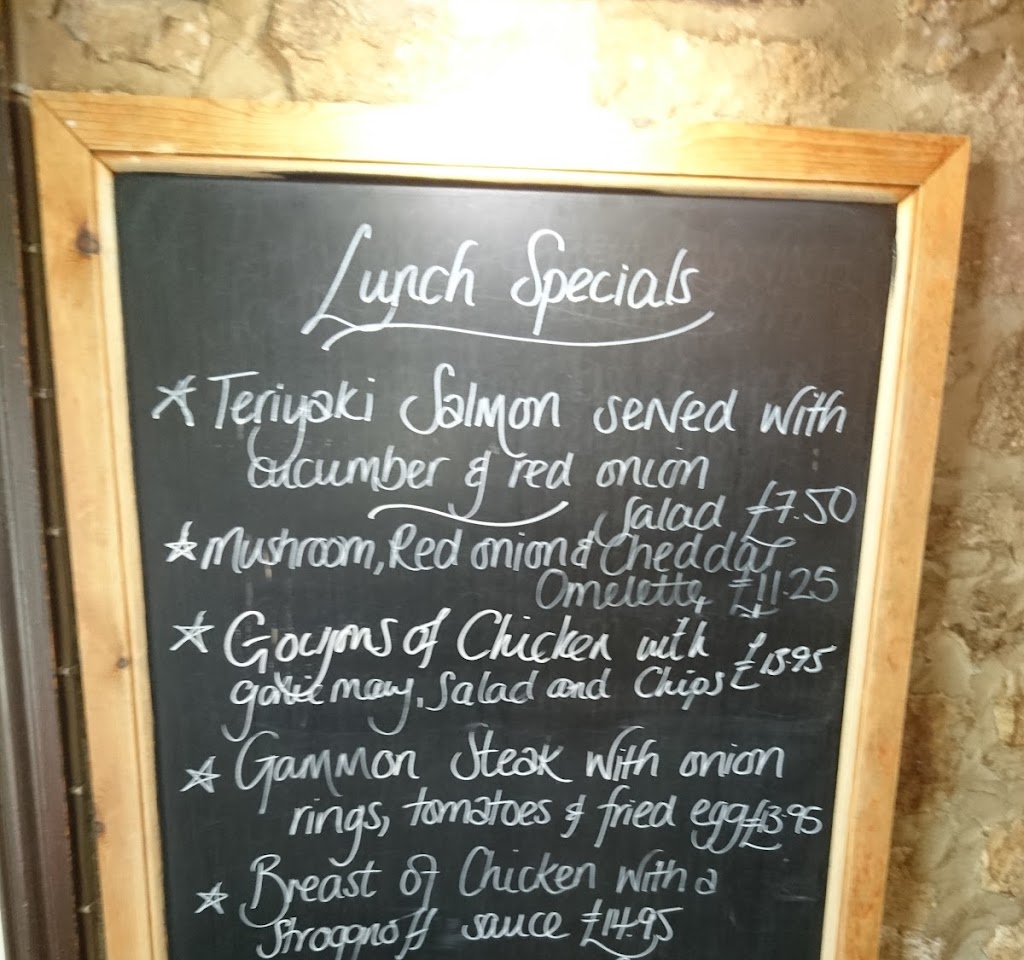 Lunch Specials
☆ Teriyaki Salmon served with
cucumber & red onion
Salad £7.50
☆ Mushroom, Red onion & Cheddar
Omelette £11.25
☆ Goujons of Chicken with
garlic mayo, Salad and Chips £13.95
☆ Gammon Steak with onion
rings, tomatoes & fried egg £13.95
☆ Breast of Chicken with a
Stroganoff sauce £14.95